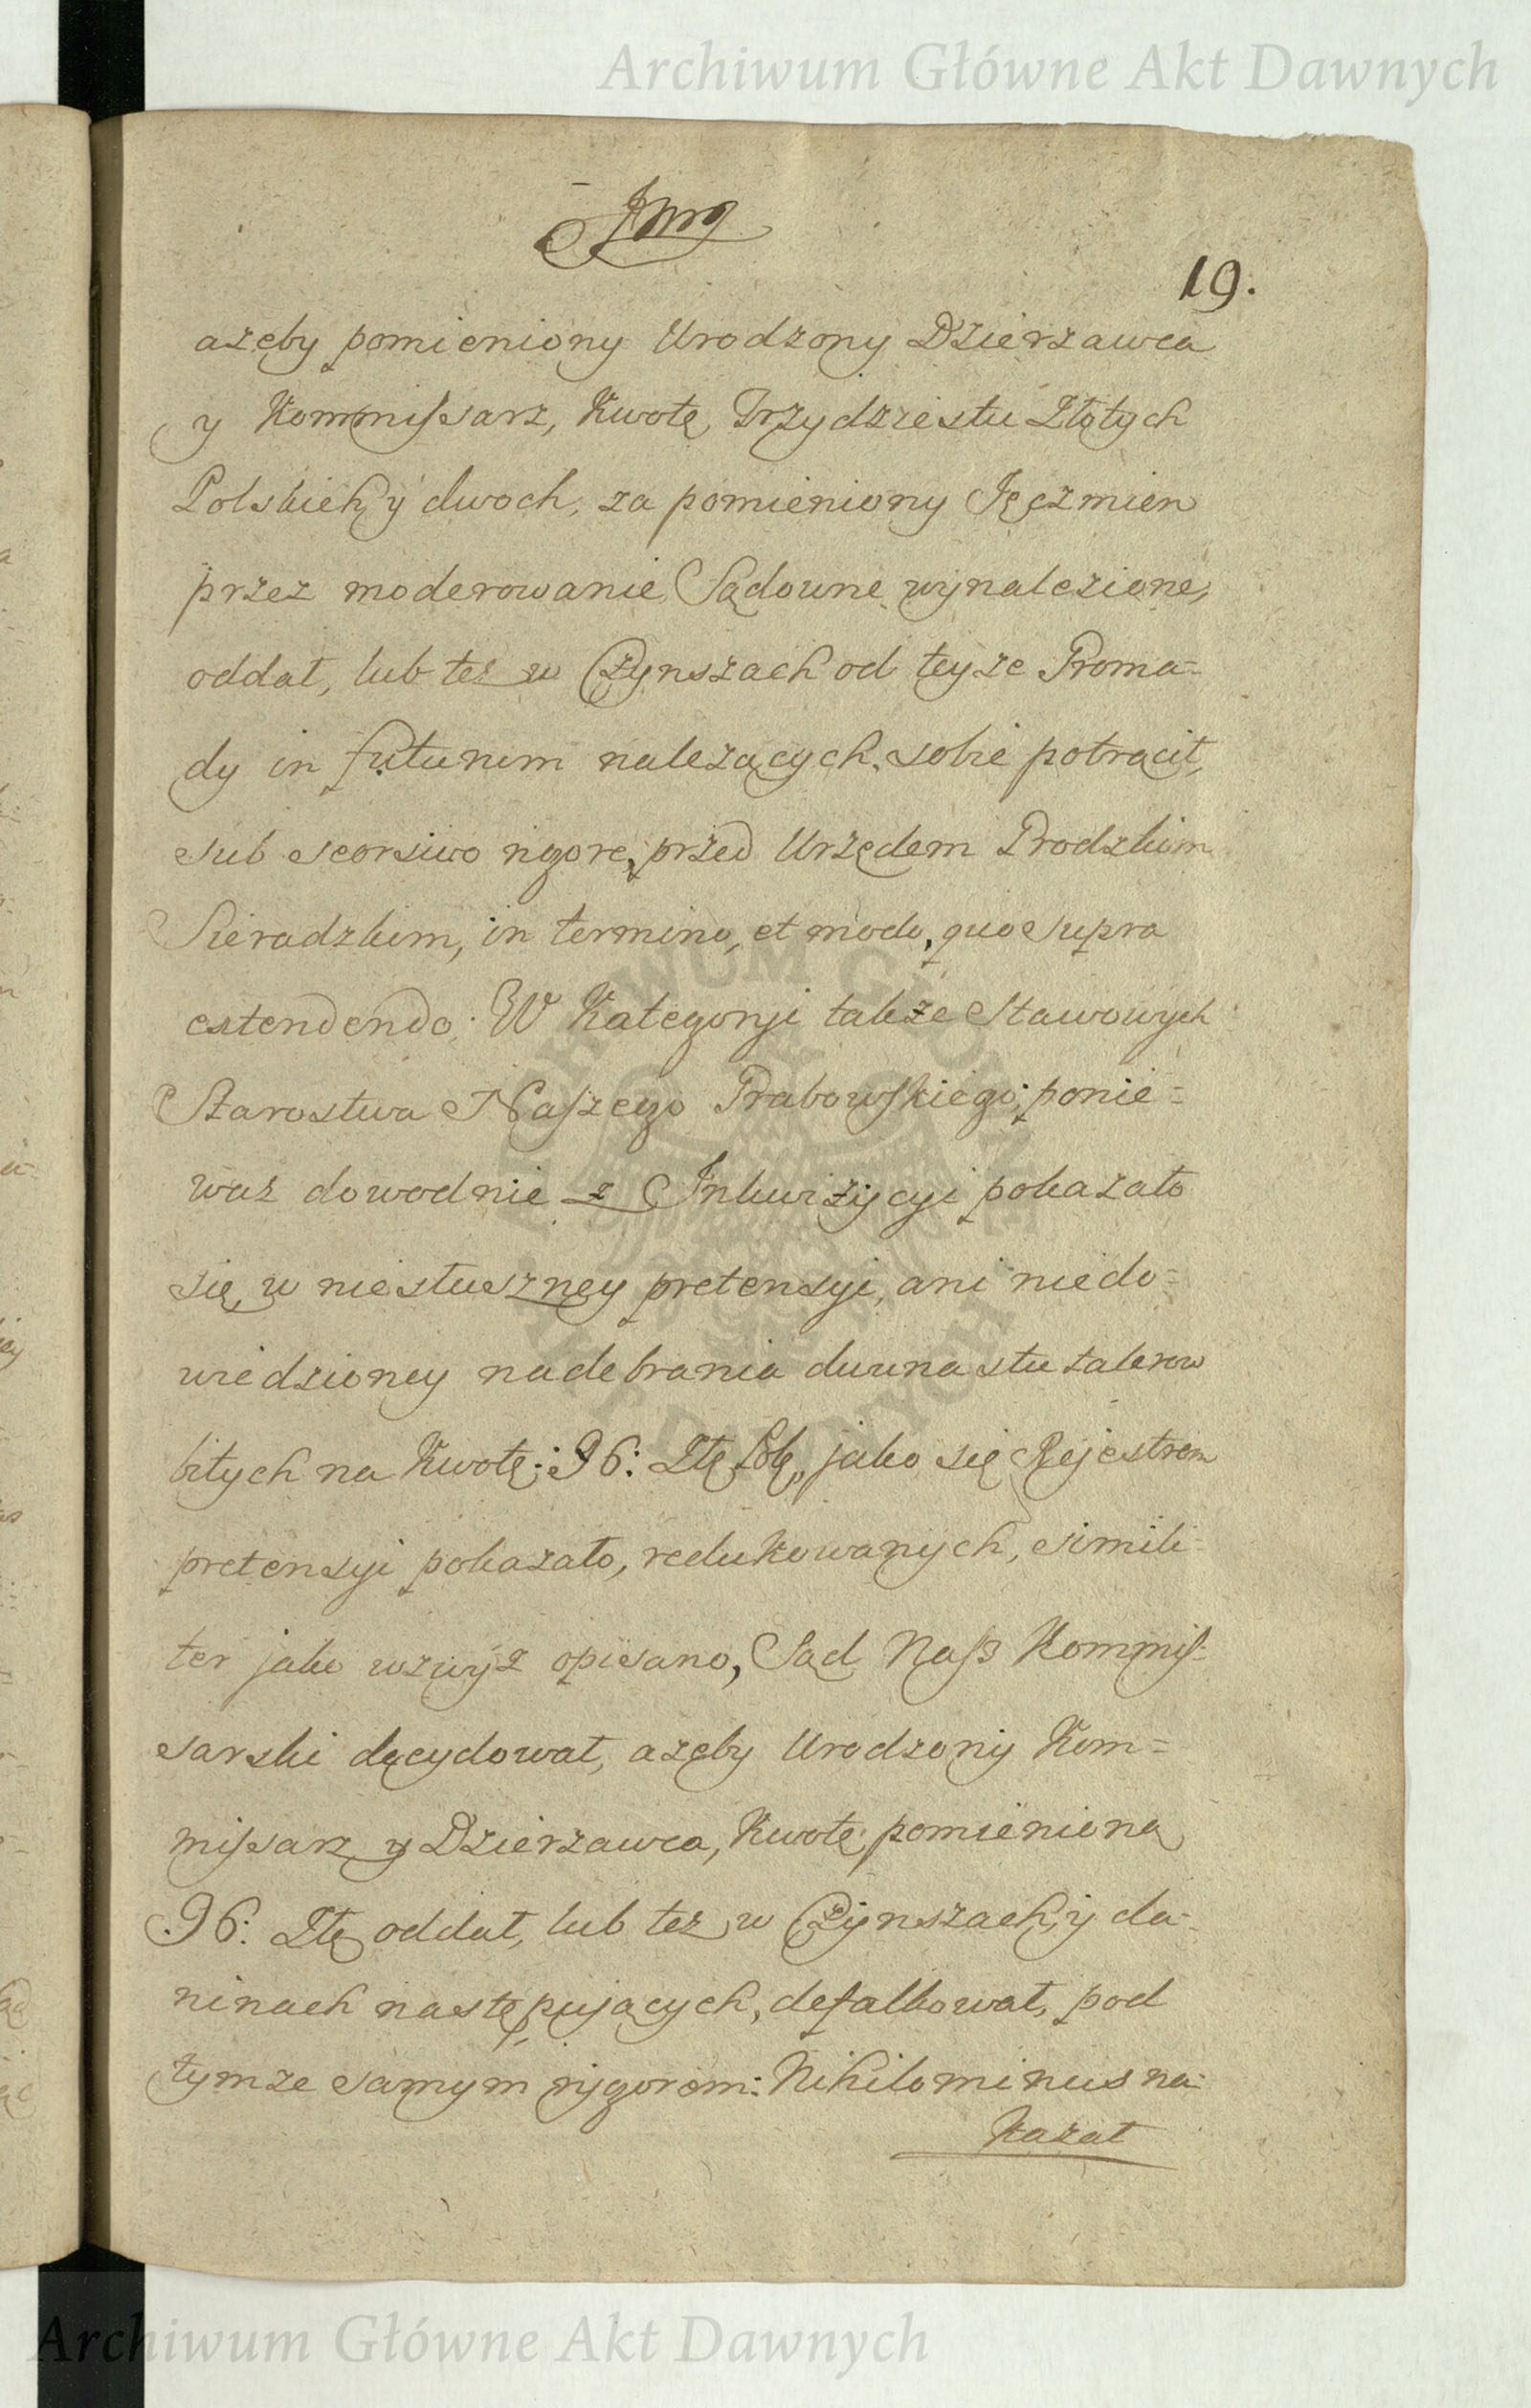 Archiwum Główne Akt Dawnych
19.
azeby pomieniony Urodzony Dzierzawca
y Kommissarz, Kwotę Trzydziestu Złotych
Polskich y dwoch, za pomieniony Jęczmien
przez moderowanie Sądowne wynalezione,
oddał, lub tez w Czynszach od teyze Groma=
dy in futurum nalezących, sobie potrącił,
sub seorsivo rigore, przed Urzędem Grodzkim
Sieradzkim, in termino, et modo, quo supra
extendendo. W Kategoryi takze Stawowych
Starostwa Naszego Grabowskiego, ponie=
waz dowodnie z Inkwizycyi pokazało
się, w niesłuszney pretensyi, ani niedo=
wiedzioney nadebrania dwunastu talerow
bitych na Kwotę: 96: Złt Pol, jako się Rejestrem
pretensyi pokazało, redukowanych, simili=
ter jako wzwyz opisano, Sąd Nasz Kommis=
sarski decydował, azeby Urodzony Kom=
missarz y Dzierzawca, Kwotę pomienioną
96: Złt oddał, lub tez w Czynszach, y da=
ninach następujących, defalkował, pod
tymze samym rygorem: Nihilominus na=
kazał
Archiwum Główne Akt Dawnych